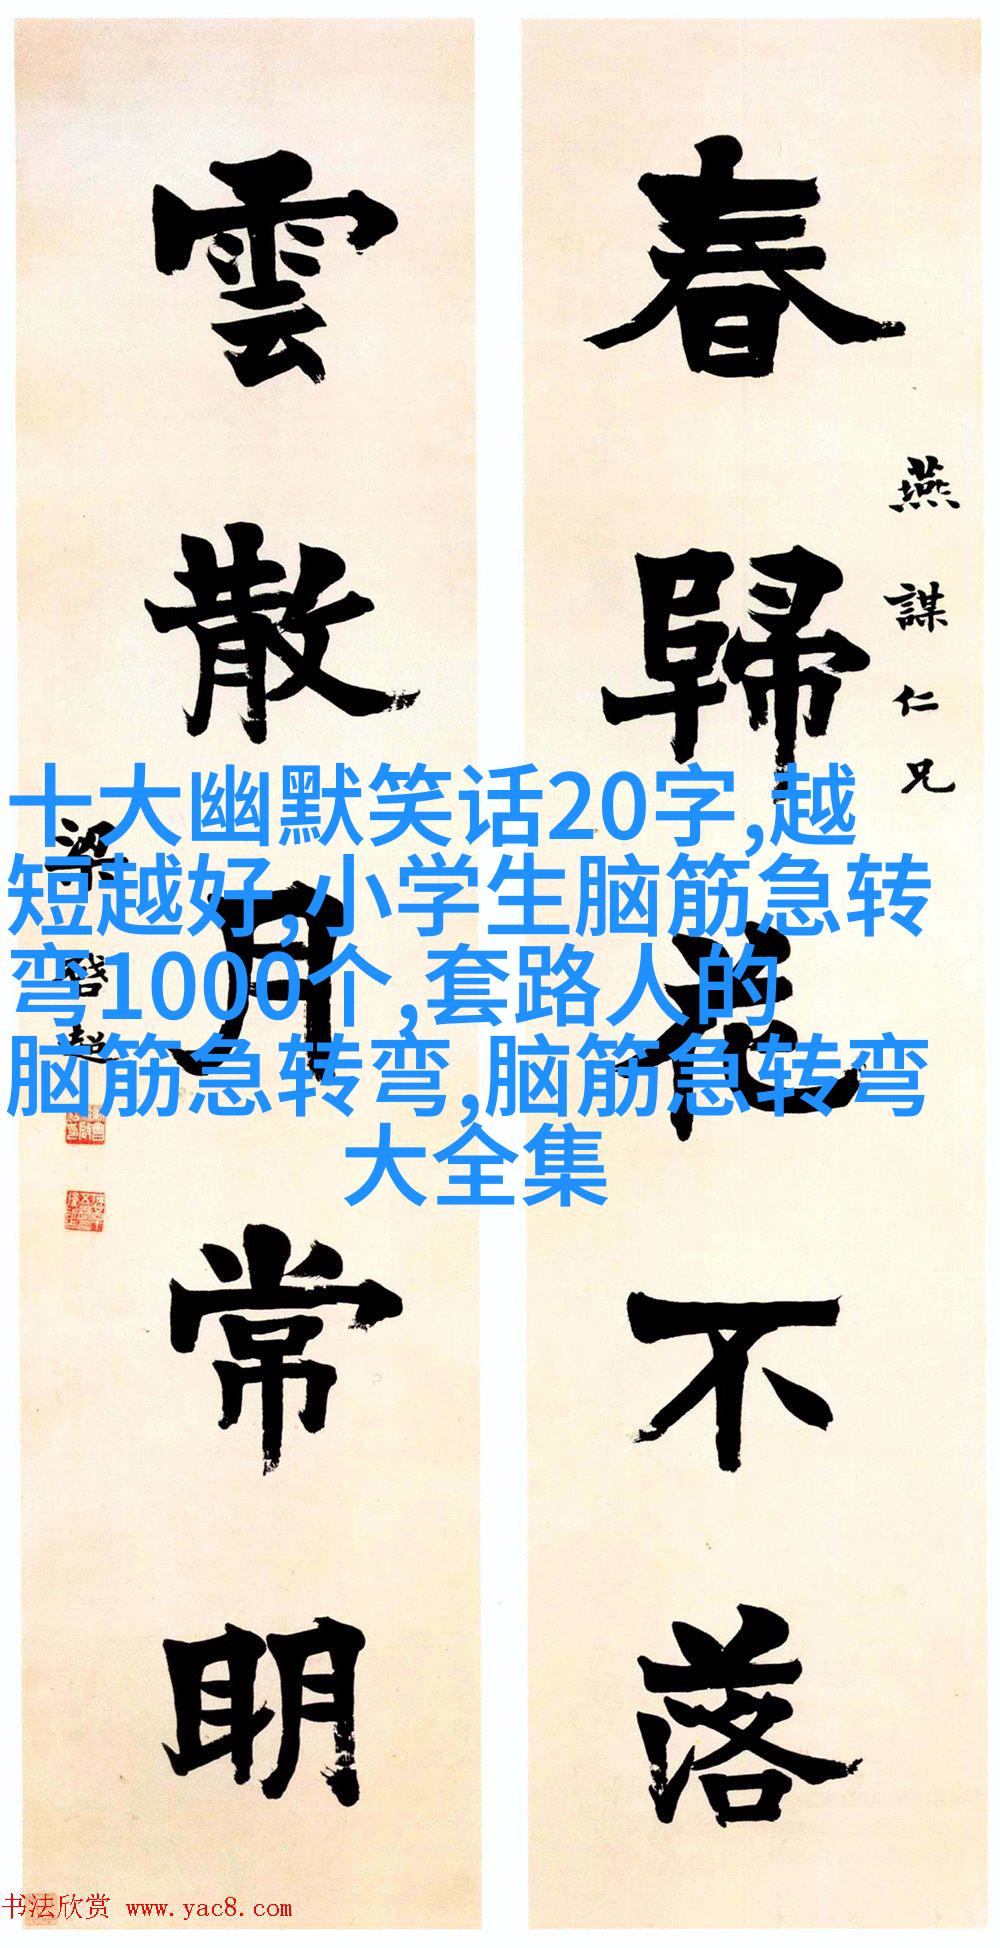 春歸花不落
燕謀仁兄
雲散月常明
梁啓超
十大幽默笑话20字,越
短越好,小学生脑筋急转
弯1000个,套路人的
脑筋急转弯,脑筋急转弯
大全集
书法欣赏 www.yac8.com